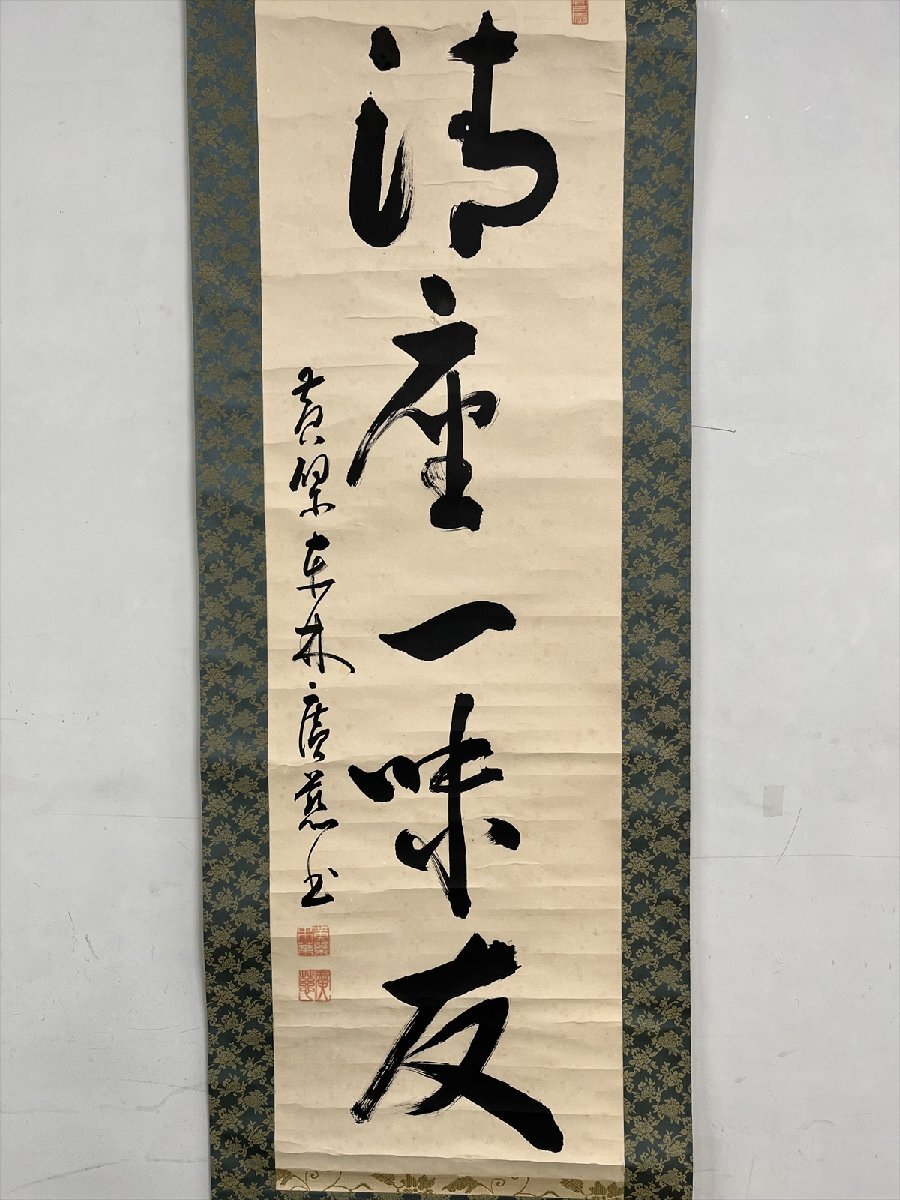 清座一味友
黄檗東林廣慈書